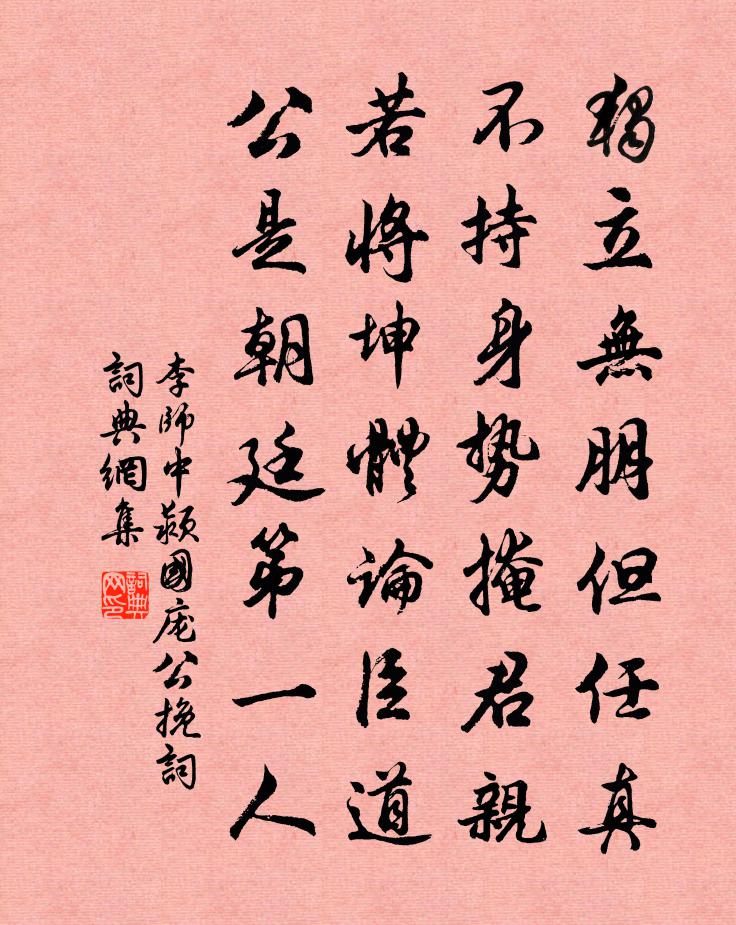 獨立無朋但任真
不持身勢掩君親
若將坤體論臣道
公是朝廷第一人
李師中潁國庞公挽詞
詞典網集
詞典網印